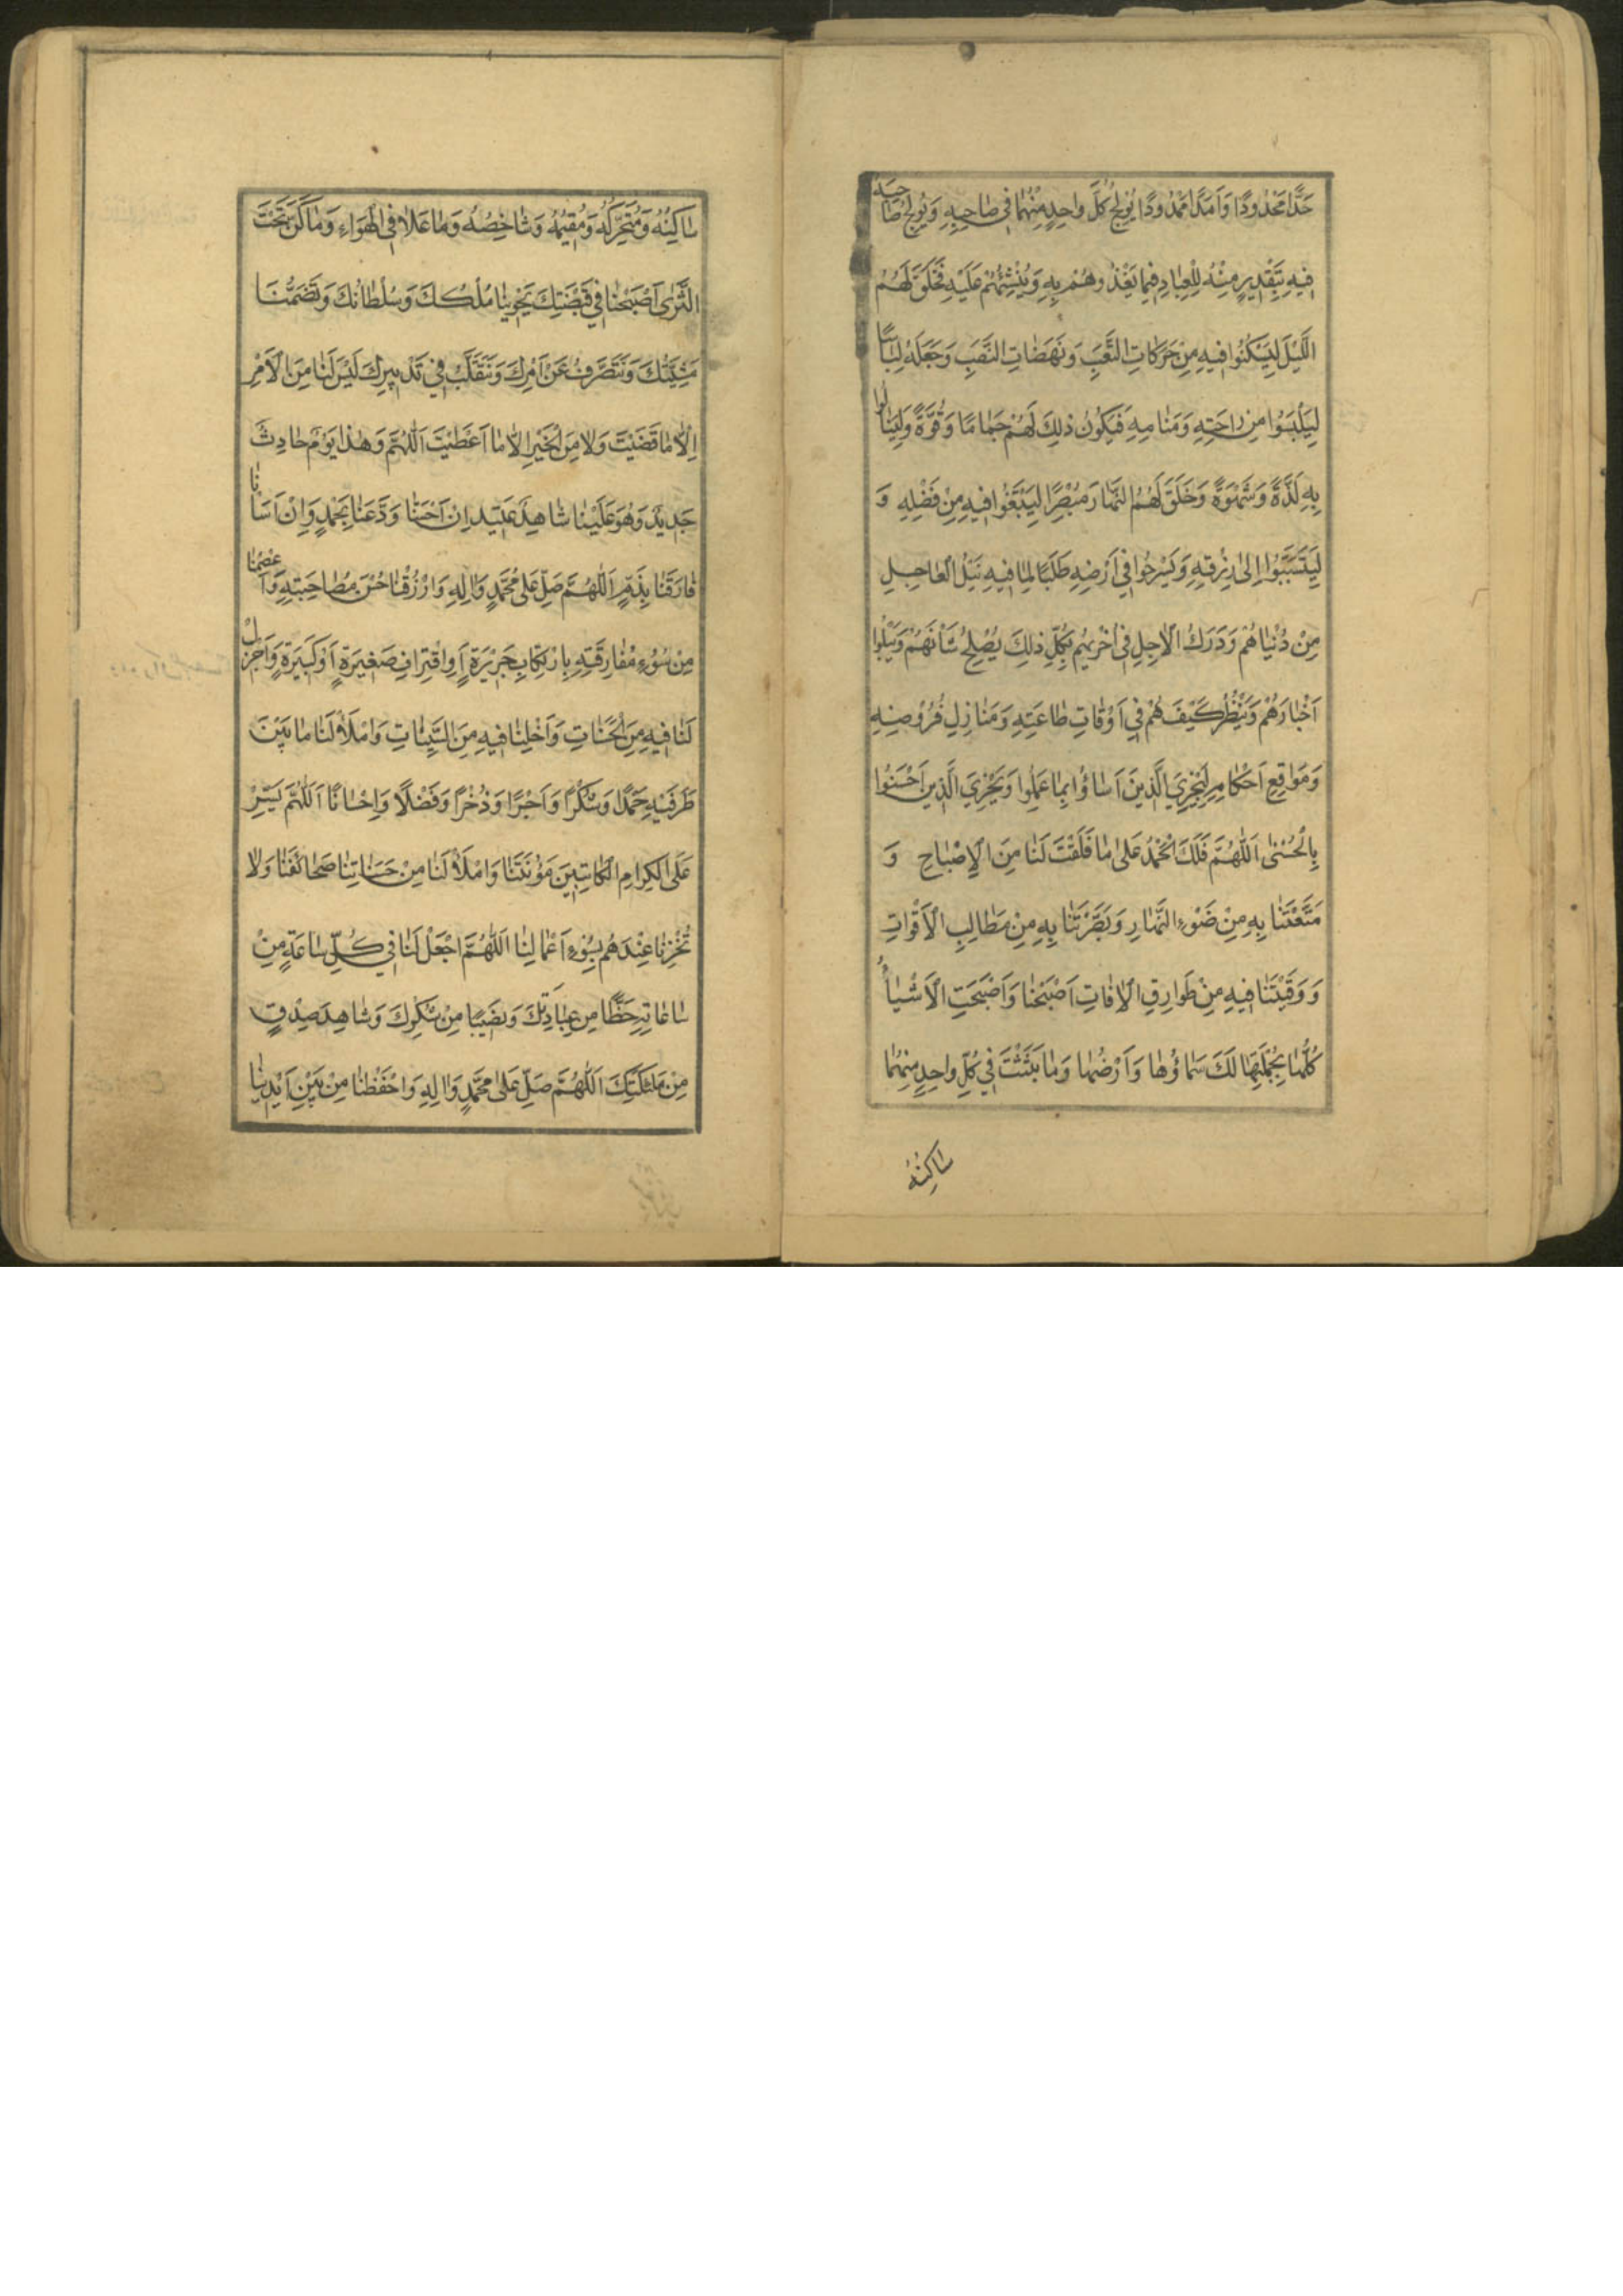 حَدًّا مَحْدُودًا وَاَمَدًا مَمْدُودًا يُولِجُ كُلَّ واحِدٍ مِنْهُما في صاحِبِهِ وَيُولِجُ صاحِبَهُ
فيهِ بِتَقْديرٍ مِنْهُ لِلْعِبادِ فيما يَغْذُوهُمْ بِهِ وَيُنْشِئُهُمْ عَلَيْهِ فَخَلَقَ لَهُمُ
اللَّيْلَ لِيَسْكُنُوا فيهِ مِنْ حَرَكاتِ التَّعَبِ وَنَهَضاتِ النَّصَبِ وَجَعَلَهُ لِباسًا
لِيَلْبَسُوا مِنْ راحَتِهِ وَمَنامِهِ فَيَكُونَ ذلِكَ لَهُمْ جَمامًا وَقُوَّةً وَلِيَنالُوا
بِهِ لَذَّةً وَشَهْوَةً وَخَلَقَ لَهُمُ النَّهارَ مُبْصِرًا لِيَبْتَغُوا فيهِ مِنْ فَضْلِهِ وَ
لِيَتَسَبَّبُوا إِلى رِزْقِهِ وَيَسْرَحُوا في اَرْضِهِ طَلَبًا لِما فيهِ نَيْلُ الْعاجِلِ
مِنْ دُنْياهُمْ وَدَرَكُ الْاجِلِ في اُخْريهُمْ بِكُلِّ ذلِكَ يُصْلِحُ شَأْنَهُمْ وَيَبْلُوا
اَخْبارَهُمْ وَيَنْظُرُ كَيْفَ هُمْ في اَوْقاتِ طاعَتِهِ وَمَنازِلِ فُرُوضِهِ
وَمَواقِعِ اَحْكامِهِ لِيَجْزِيَ الَّذينَ اَساؤُا بِما عَمِلُوا وَيَجْزِيَ الَّذينَ اَحْسَنُوا
بِالْحُسْنى اَللّهُمَّ فَلَكَ الْحَمْدُ عَلى ما فَلَقْتَ لَنا مِنَ الْإِصْباحِ وَ
مَتَّعْتَنا بِهِ مِنْ ضَوْءِ النَّهارِ وَبَصَّرْتَنا بِهِ مِنْ مَطالِبِ الْأَقْواتِ
وَوَقَيْتَنا فيهِ مِنْ طَوارِقِ الْافاتِ اَصْبَحْنا وَاَصْبَحَتِ الْاَشْياءُ
كُلُّها بِجُمْلَتِها لَكَ سَماؤُها وَاَرْضُها وَما بَثَثْتَ في كُلِّ واحِدٍ مِنْهُما
ساكِنُهُ
ساكِنُهُ وَمُتَحَرِّكُهُ وَمُقيمُهُ وَشاخِصُهُ وَما عَلا في الْهَواءِ وَما كَنَّ تَحْتَ
الثَّرى اَصْبَحْنا في قَبْضَتِكَ يَحْوينا مُلْكُكَ وَسُلْطانُكَ وَتَضُمُّنا
مَشِيَّتُكَ وَنَتَصَرَّفُ عَنْ اَمْرِكَ وَنَتَقَلَّبُ في تَدْبيرِكَ لَيْسَ لَنا مِنَ الْاَمْرِ
اِلّا ما قَضَيْتَ وَلا مِنَ الْخَيْرِ اِلّا ما اَعْطَيْتَ اَللّهُمَّ وَهذا يَوْمٌ حادِثٌ
جَديدٌ وَهُوَ عَلَيْنا شاهِدٌ عَتيدٌ اِنْ اَحْسَنّا وَدَّعَنا بِحَمْدٍ وَاِنْ اَسَأْنا
فارَقَنا بِذَمٍّ اَللّهُمَّ صَلِّ عَلى مُحَمَّدٍ وَالِهِ وَارْزُقْنا حُسْنَ مُصاحَبَتِهِ وَاعْصِمْنا
مِنْ سُوءِ مُفارَقَتِهِ بِارْتِكابِ جَريرَةٍ اَوِ اقْتِرافِ صَغيرَةٍ اَوْ كَبيرَةٍ وَاَجْزِلْ
لَنا فيهِ مِنَ الْحَسَناتِ وَاَخْلِنا فيهِ مِنَ السَّيِّئاتِ وَامْلَأْ لَنا ما بَيْنَ
طَرَفَيْهِ حَمْدًا وَشُكْرًا وَاَجْرًا وَذُخْرًا وَفَضْلًا وَاِحْسانًا اَللّهُمَّ يَسِّرْ
عَلَى الْكِرامِ الْكاتِبينَ مَؤُنَتَنا وَامْلَأْ لَنا مِنْ حَسَناتِنا صَحائِفَنا وَلا
تُخْزِنا عِنْدَهُمْ بِسُوءِ اَعْمالِنا اَللّهُمَّ اجْعَلْ لَنا في كُلِّ ساعَةٍ مِنْ
ساعاتِهِ حَظًّا مِنْ عِبادَتِكَ وَنَصيبًا مِنْ شُكْرِكَ وَشاهِدَ صِدْقٍ
مِنْ مَلئِكَتِكَ اَللّهُمَّ صَلِّ عَلى مُحَمَّدٍ وَالِهِ وَاحْفَظْنا مِنْ بَيْنِ اَيْدينا